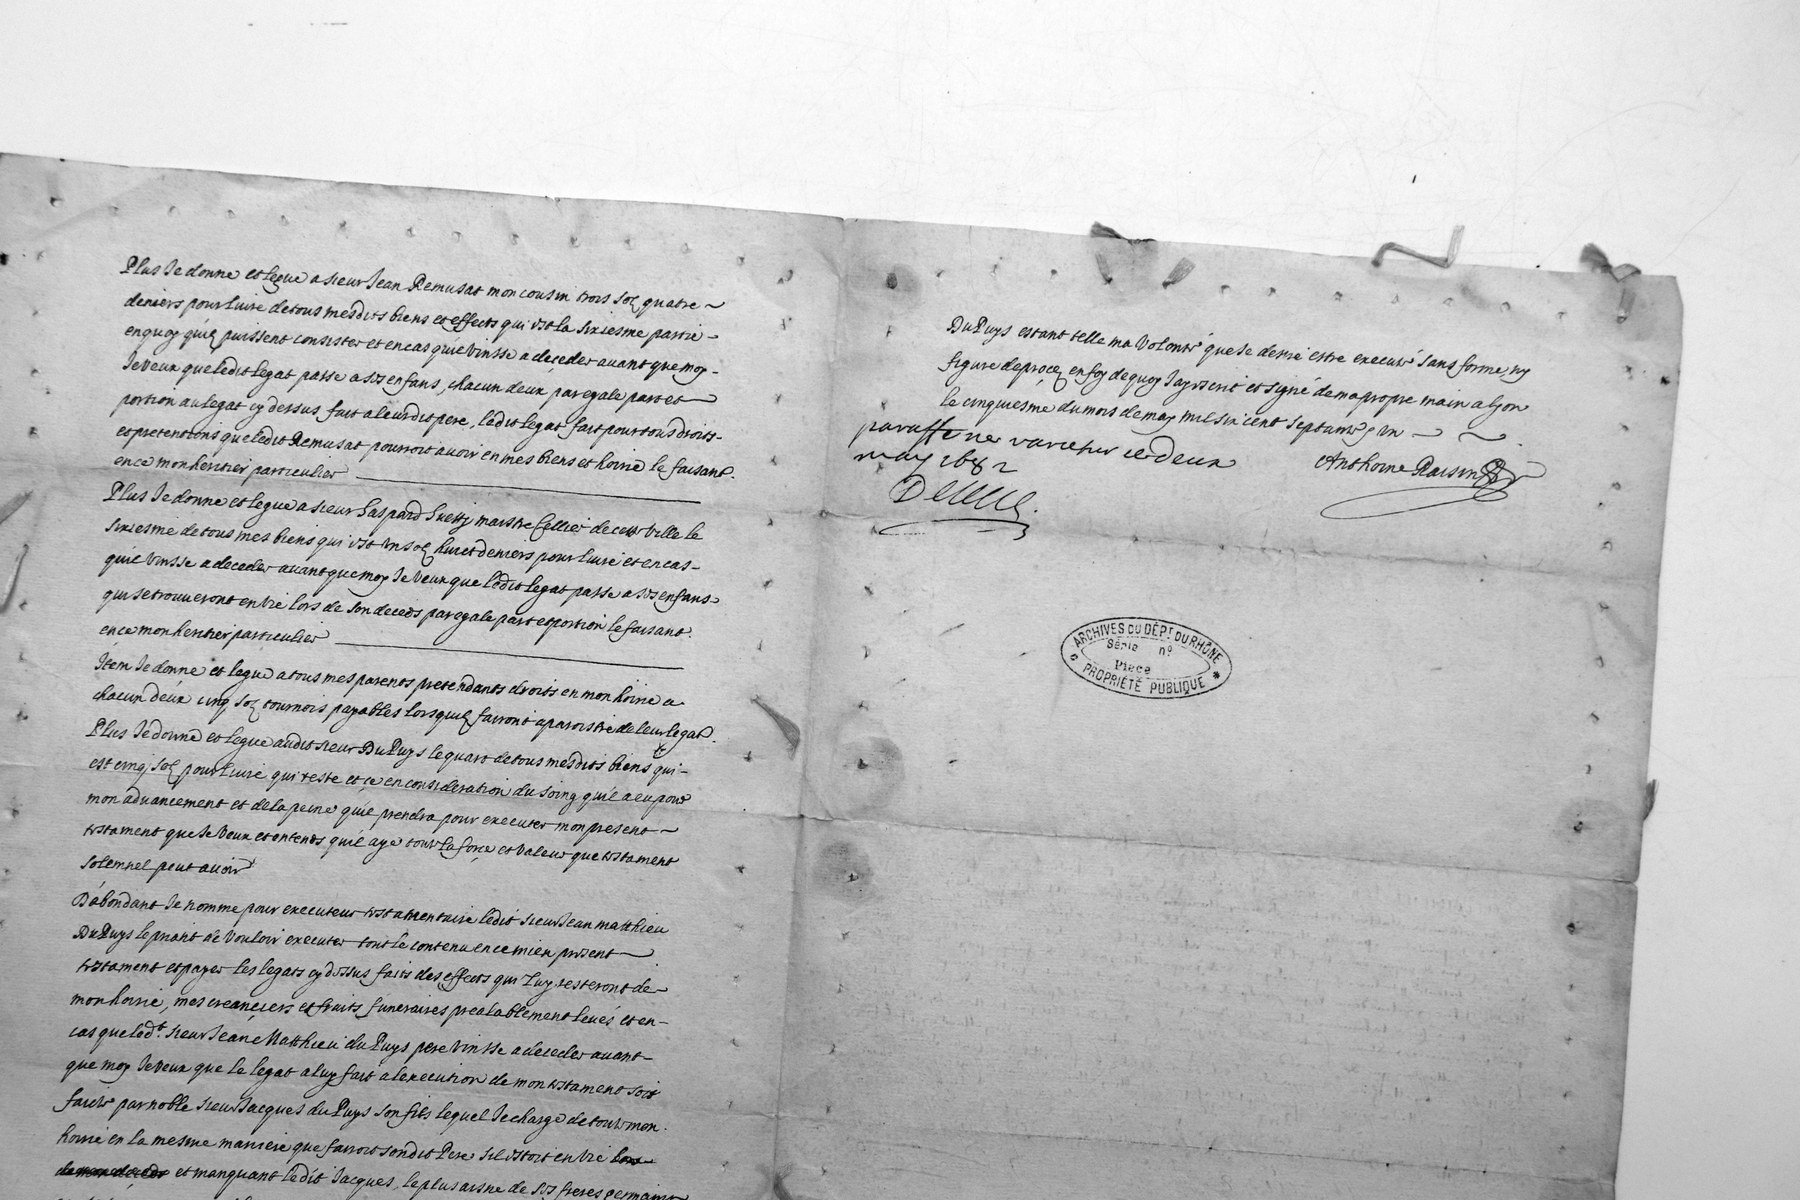 Plus Je donne et legue a sieur Jean Remusat mon cousin trois solz quatre
deniers pour livre de tous mesdits biens et effects qui est la sixiesme partie
en quoy quilz puissent consister et en cas quil vinsse a deceder avant que moy
Je veux que ledit legat passe a ses enfans, chacun deux par egale part et
portion au legat cy dessus fait a leurdit pere, ledit legat fait pour tous droits
et pretentions que ledit Remusat pourroit avoir en mes biens et hoirie le faisant
en ce mon heritier particulier
Plus Je donne et legue a sieur Gaspard maistre Cellier de cette ville le
sixiesme de tous mes biens qui est un solz huict deniers pour livre et en cas
quil vinsse a deceder avant que moy Je veux que ledit legat passe a ses enfans
qui se trouveront en vie lors de son deceds par egale part et portion le faisant
en ce mon heritier particulier
Item Je donne et legue a tous mes parents pretendants droits en mon hoirie a
chacun deux cinq solz tournois payables lorsquilz fairont aparoistre de leur legat.
Plus Je donne et legue audit sieur DuPuys le quart de tous mesdits biens qui
est cinq solz pour livre qui reste et ce en consideration du soing quil a eu pour
mon advancement et de la peine quil prendra pour executer mon present
testament que Je veux et entends quil aye toute la force et valeur que testament
solemnel peut avoir
D'abondant Je nomme pour executeur testamentaire ledit sieur Jean matthieu
DuPuys le priant de vouloir executer tout le contenu en ce mien present
testament et payer les legats cy dessus faits des effects qui luy resteront de
mon hoirie, mes creanciers et fraits funeraires prealablement levés et en
cas que ledt. sieur Jean Matthieu du Puys pere vinsse a deceder avant
que moy Je veux que le legat a luy fait a l'execution de mon testament soit
faicte par noble sieur Jacques du Puys son fils lequel Je charge de toute mon
hoirie en la mesme maniere que fairoit sondit Pere sil estoit en vie
et manquant ledit Jacques, le plus aisne de ses freres germains
DuPuys estant telle ma volonté que Je desire estre executé sans forme ny
figure de procez en foy de quoy Jay escrit et signé de ma propre main a Lyon
le cinquiesme du mois de may mil six cent septante et un
paraffé ne varietur ce deux
may 1682
Anthoine Raisin
ARCHIVES DU DÉPT. DU RHÔNE
Série no
Pièce
* PROPRIÉTÉ PUBLIQUE *